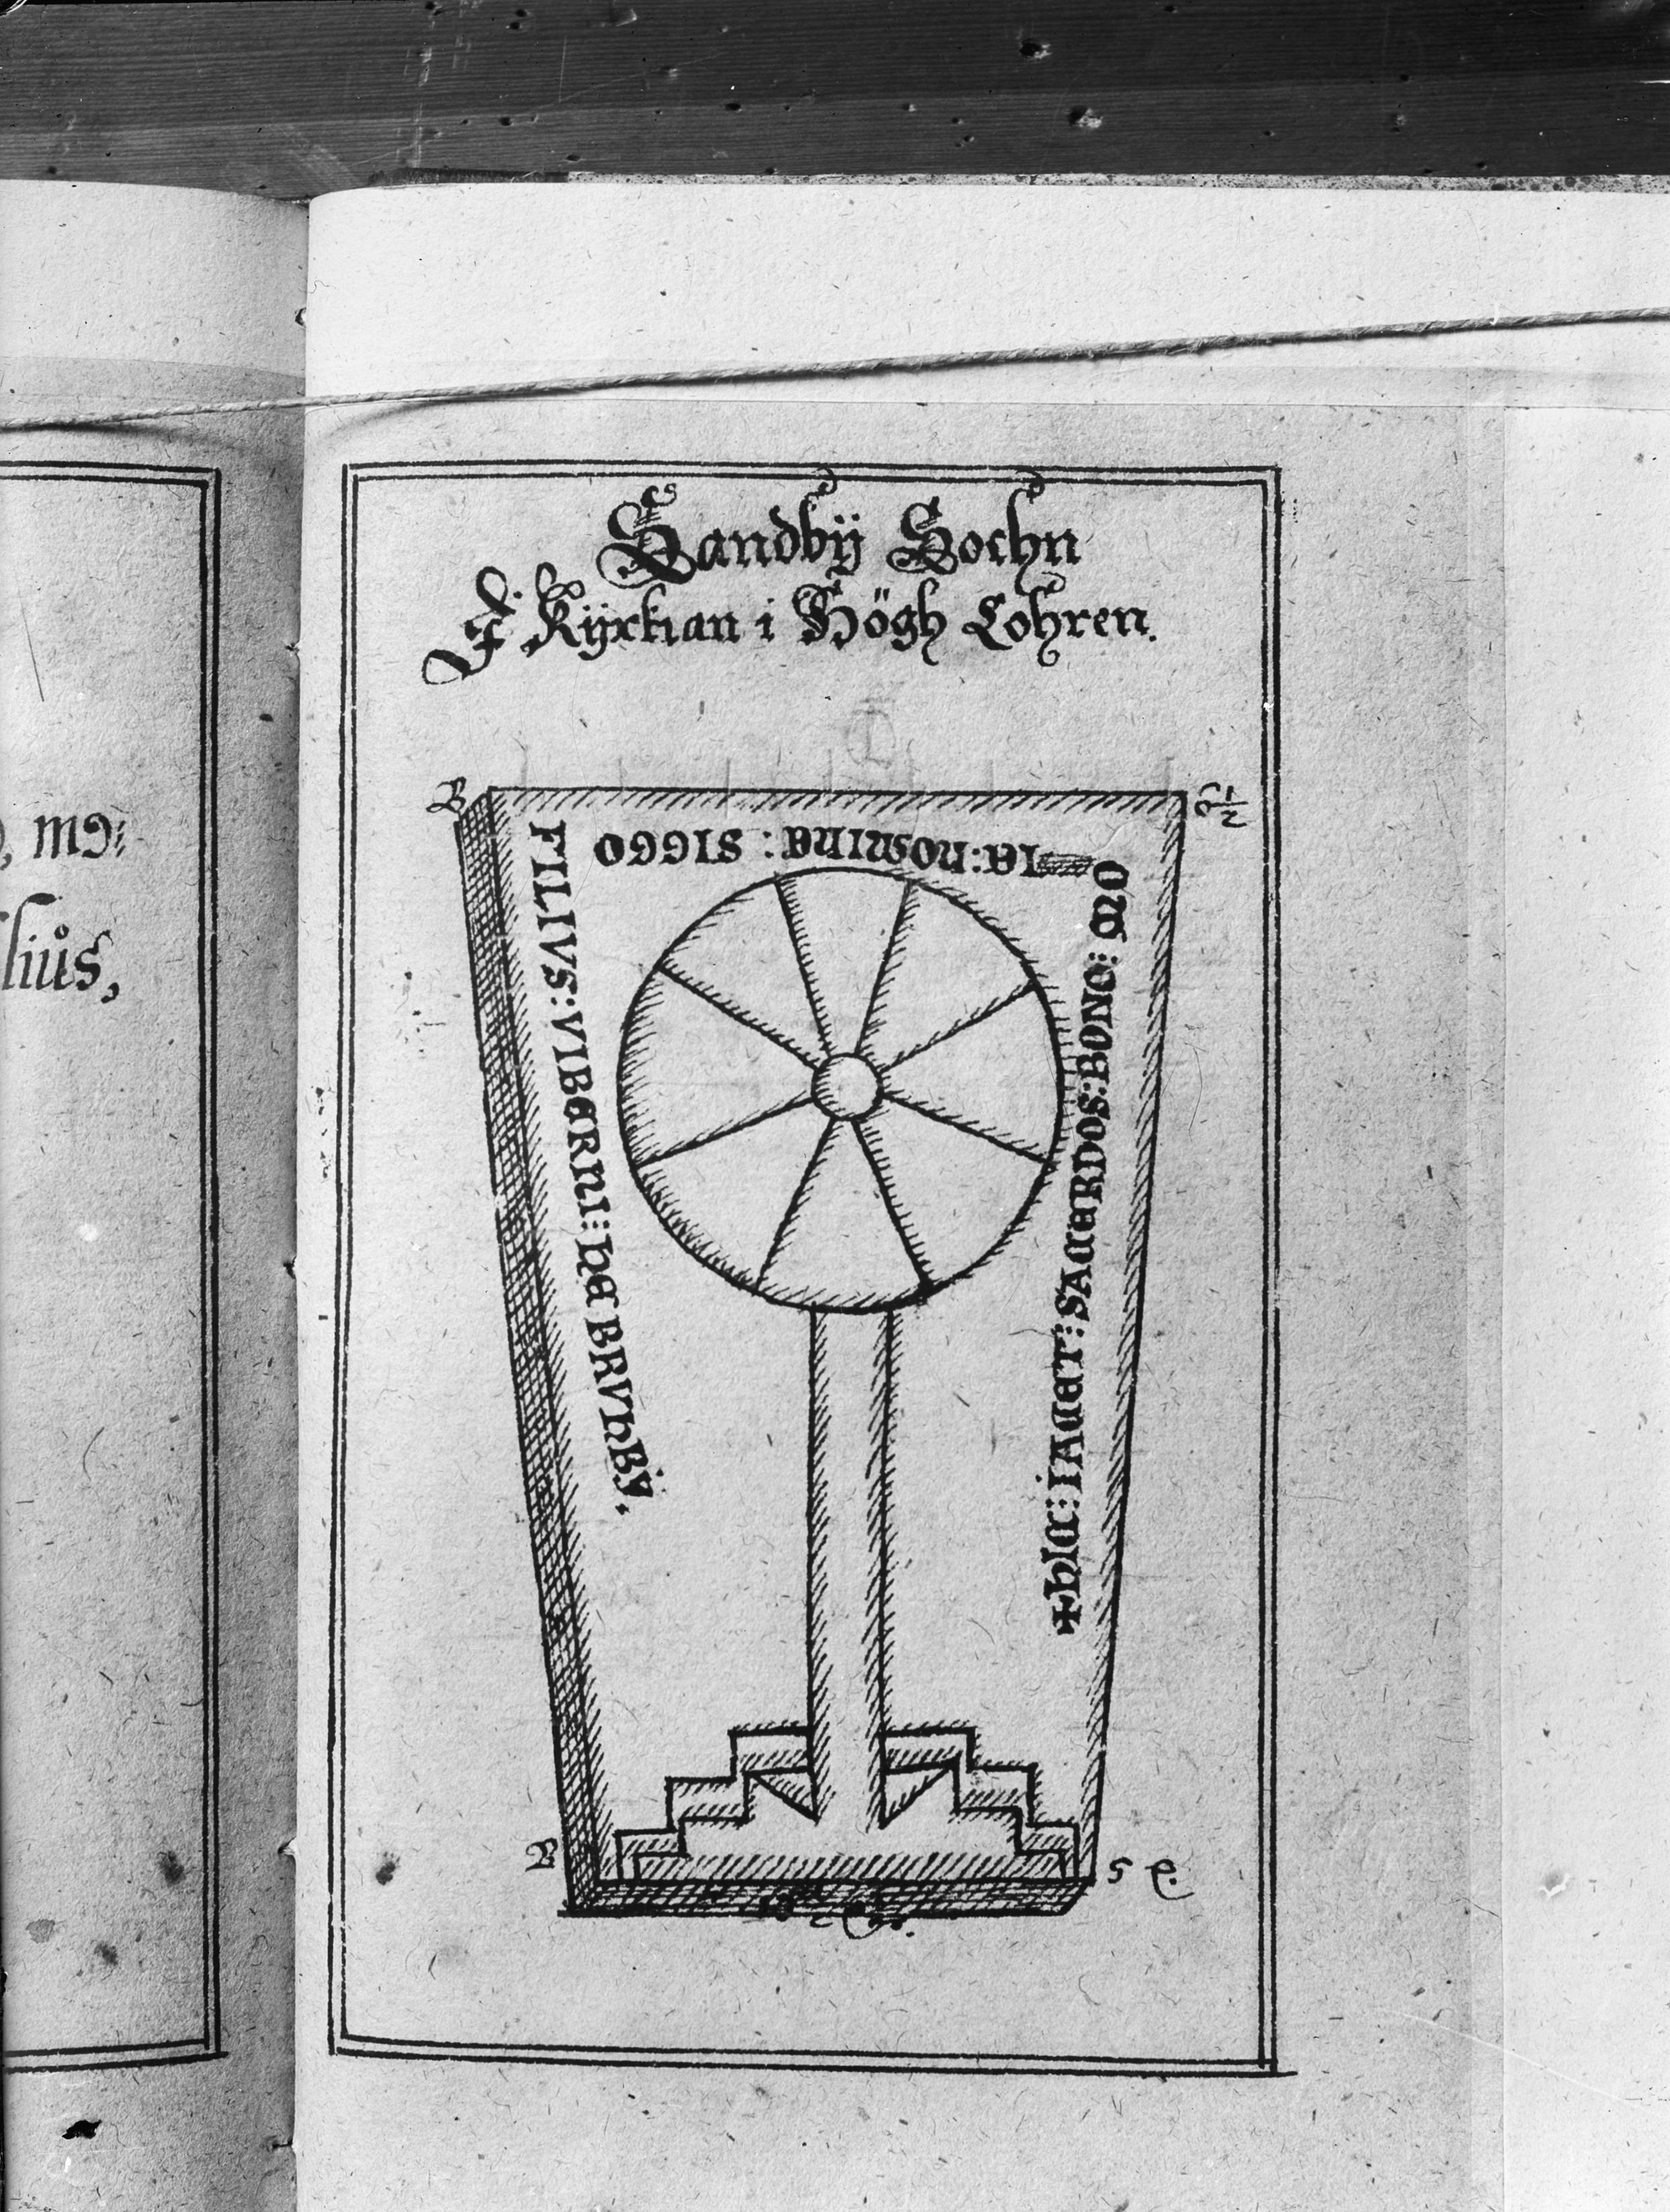 Sandbÿ Sochn
J Kÿrkian i Högh Cohren.
B
6 1/2
✠HIC⁝IACET⁝SACERDOS⁝BONO⁝MO
IA:NOMINE: SIGGO
FILIVS:VIBERNI⁝HE BRVHBŸ.
B
5 e.
m9⁝
liůs,